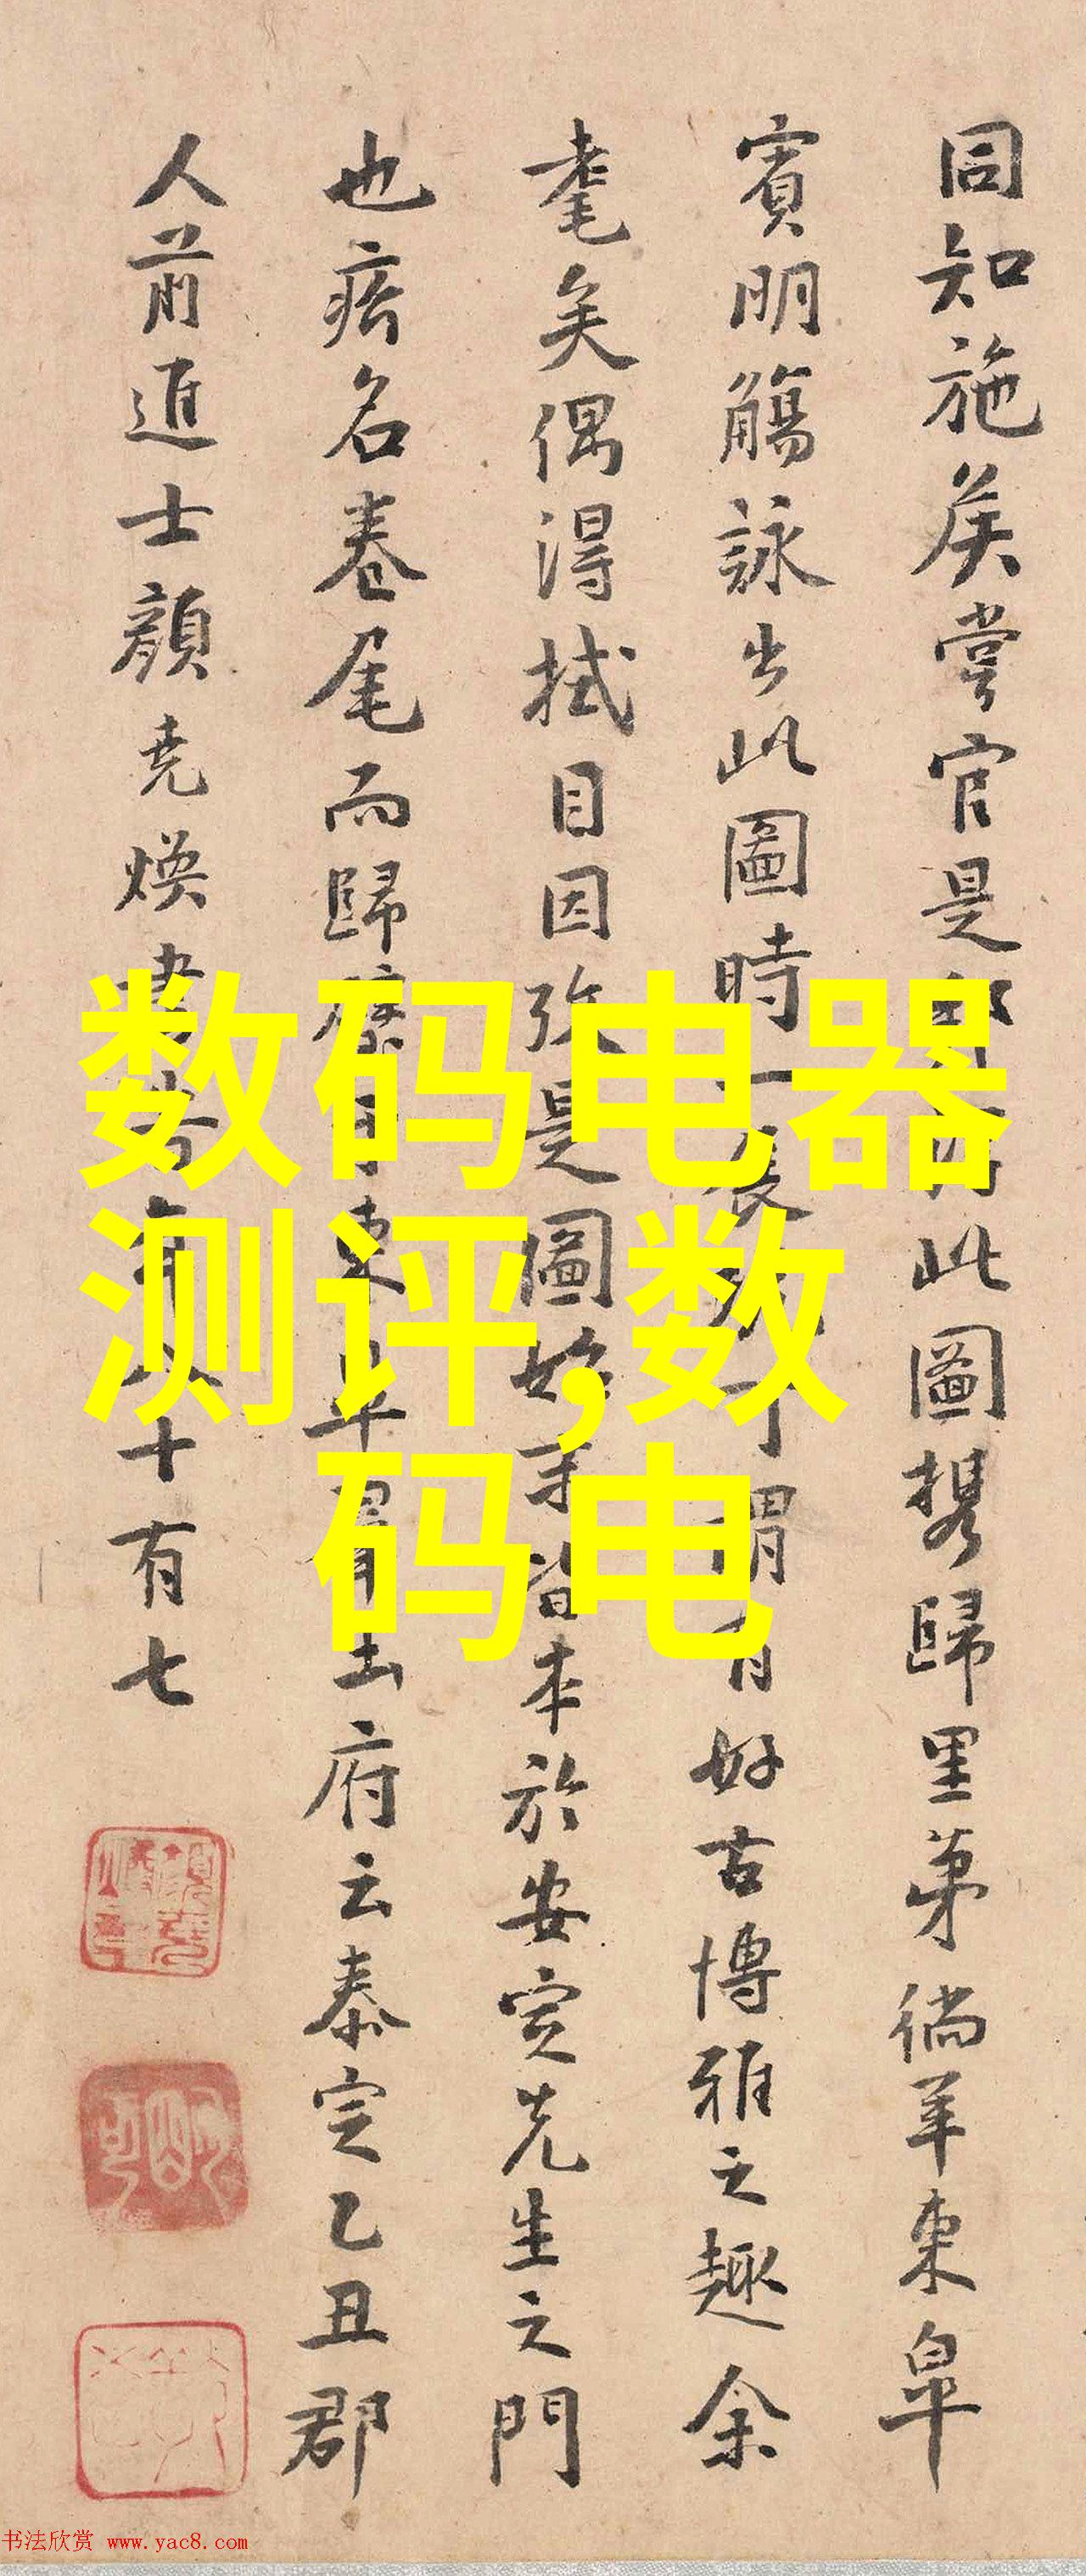 同知施侯嘗官是此圖携歸里第徜羊東皐
賓明觴詠出此圖時一可謂有好古博雅之趣余
耄矣偶得拭目因玆是圖始末皆本於安定先生之門
也瘩名卷尾而歸東平出府云泰定乙丑郡
人前進士顏堯煥書十有七
数码电器
测评,数
码电
书法欣赏 www.yac8.com